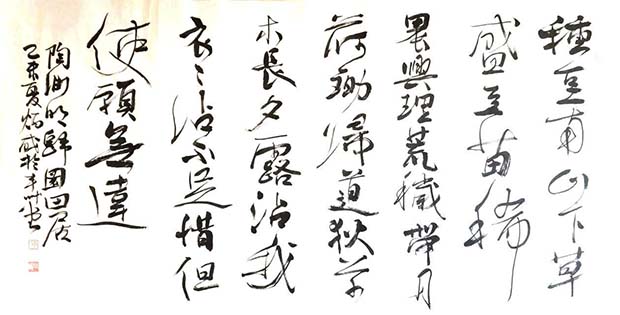 種豆南山下草
盛豆苗稀
晨興理荒穢帶月
荷鋤歸道狹草
木長夕露沾我
衣〻沾不足惜但
使願無違
陶淵明歸園田居
乙未夏